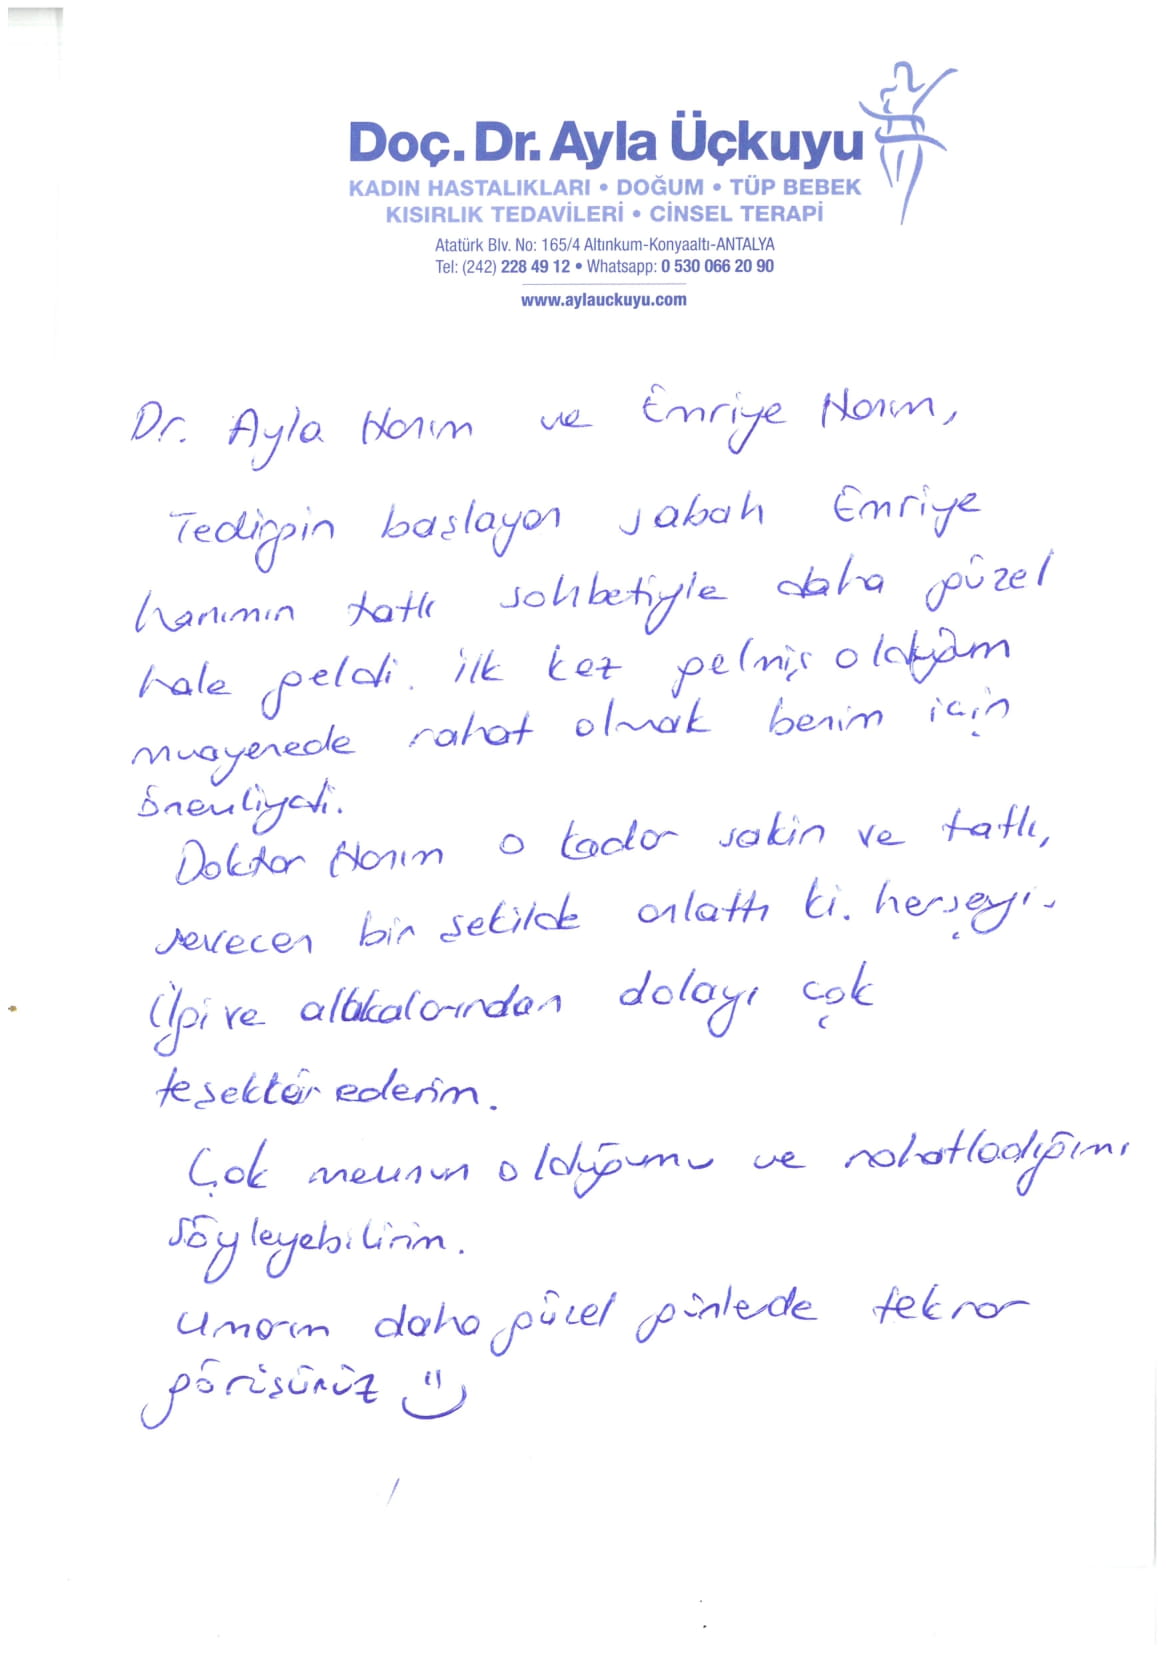 Doç. Dr. Ayla Üçkuyu
KADIN HASTALIKLARI • DOĞUM • TÜP BEBEK
KISIRLIK TEDAVİLERİ • CİNSEL TERAPİ
Atatürk Blv. No: 165/4 Altınkum-Konyaaltı-ANTALYA
Tel: (242) 228 49 12 • Whatsapp: 0 530 066 20 90
www.aylauckuyu.com
Dr. Ayla Hanım ve Emriye Hanım,
Tedirgin başlayan sabah Emriye
hanımın tatlı sohbetiyle daha güzel
hale geldi. İlk kez gelmiş olduğum
muayenede rahat olmak benim için
önemliydi.
Doktor Hanım o kadar sakin ve tatlı,
sevecen bir şekilde anlattı ki. herşeyi.
İlgi ve alakalarından dolayı çok
teşekkür ederim.
Çok memnun olduğumu ve rahatladığımı
söyleyebilirim.
Umarım daha güzel günlerde tekrar
görüşürüz